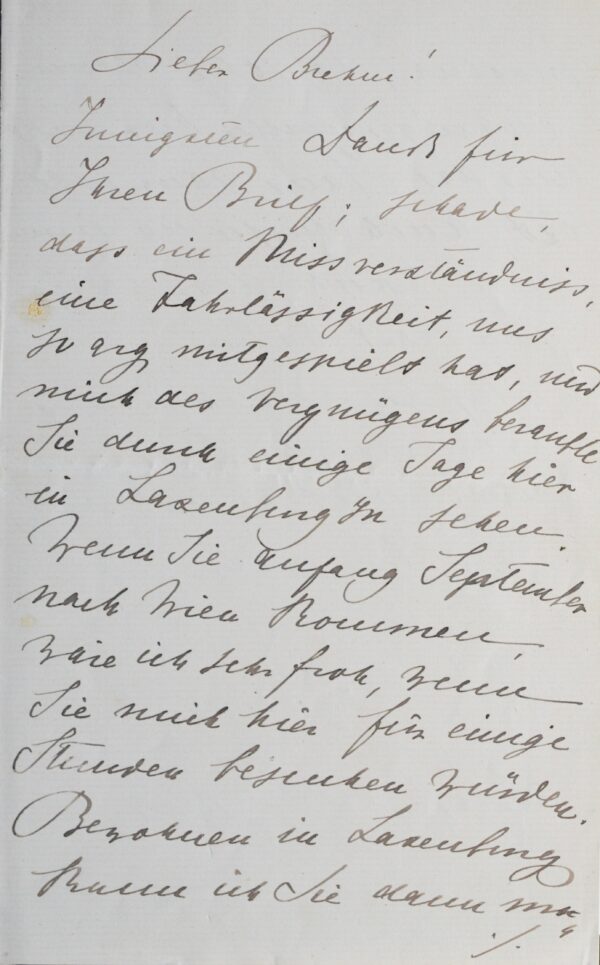 Lieber Brehm!
Innigsten Dank für
Ihren Brief; schade,
dass ein Missverständniss,
eine Fahrlässigkeit, uns
so arg mitgespielt hat, und
mich des Vergnügens beraubte
Sie durch einige Tage hier
in Laxenburg zu sehen.
Wenn Sie anfang September
nach Wien kommen,
wäre ich sehr froh, wenn
Sie mich hier für einige
Stunden besuchen würden.
Bewohnen in Laxenburg
kann ich Sie dann
./.